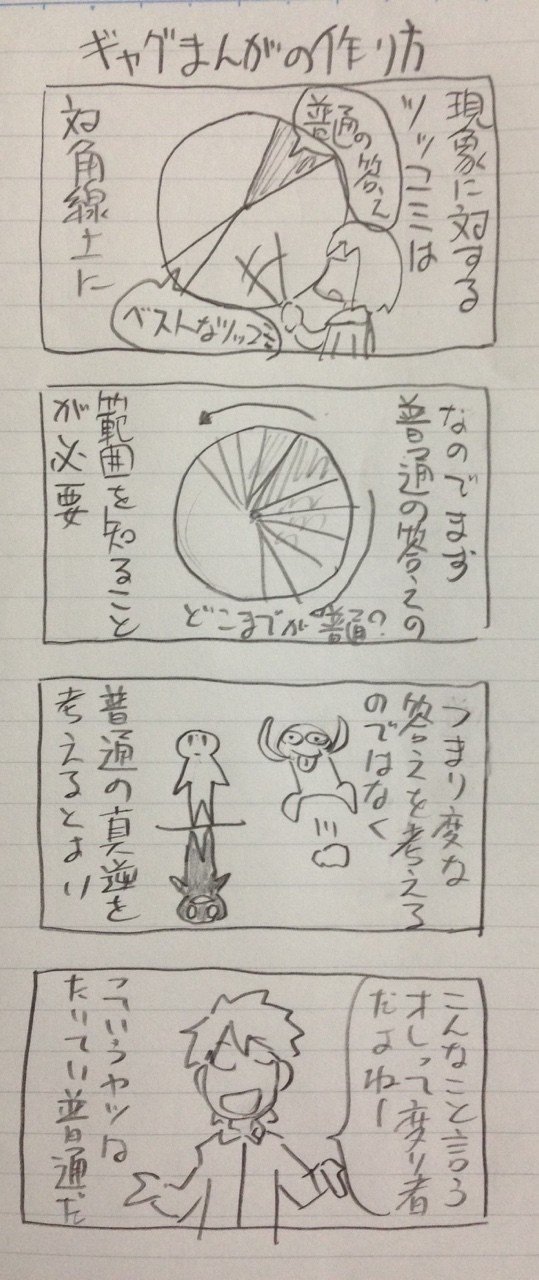 ギャグまんがの作り方
現象に対する
ツッコミは
普通の答え
ベストなツッコミ
対角線上に
なのでまず
普通の答えの
どこまでが普通の?
範囲を知ること
が必要
つまり変な
答えを考える
のではなく
普通の真逆を
考えるとよい
こんなこと言う
オレって変り者
だよねー
こういうヤツは
たいてい普通だ